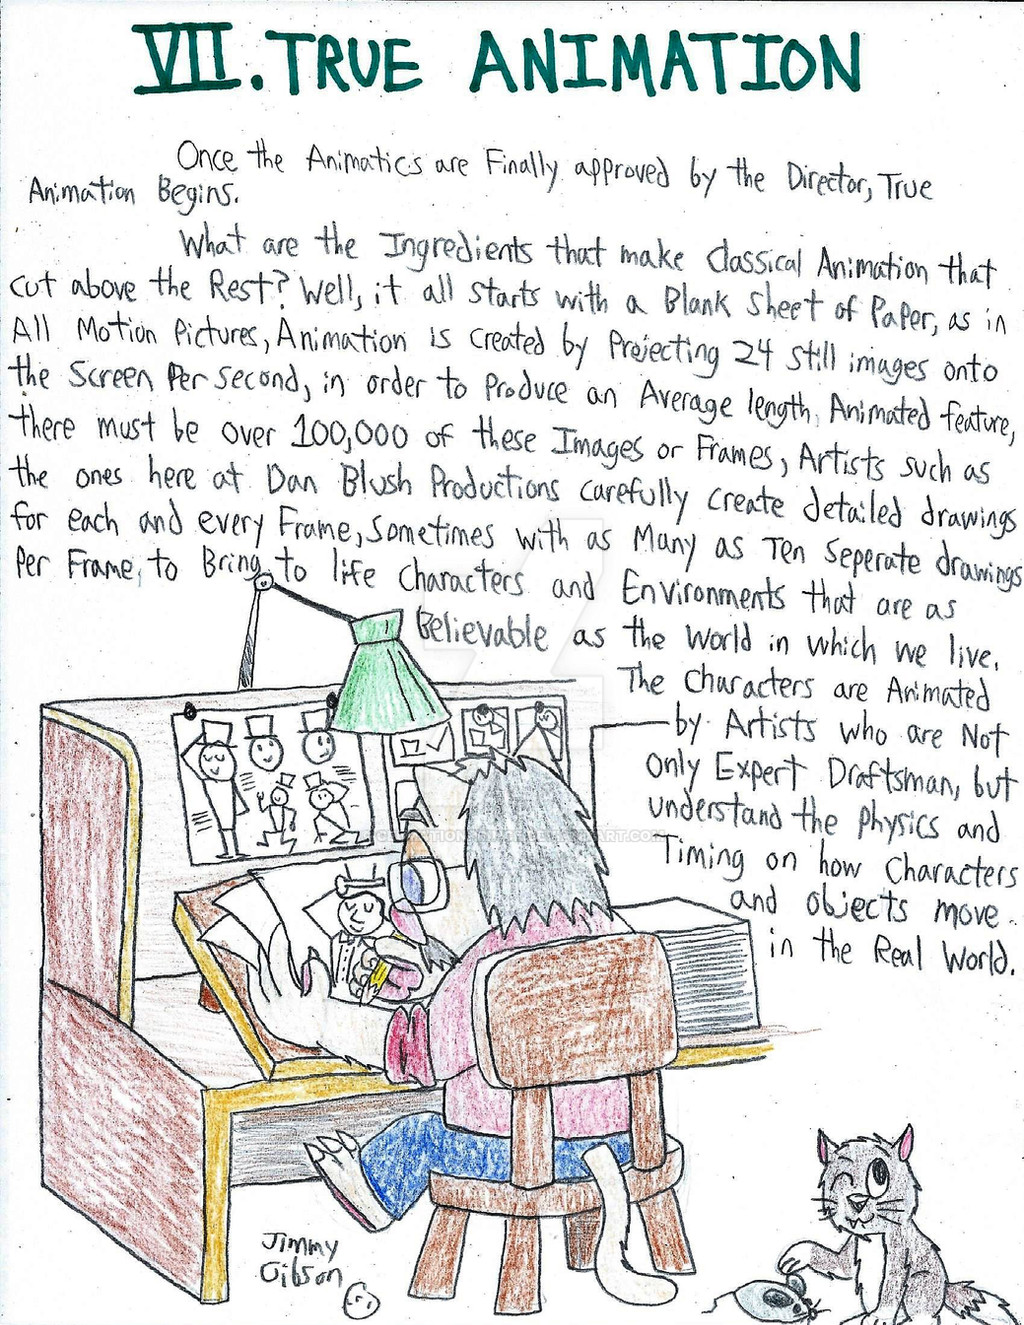 VII. TRUE ANIMATION
Once the Animatics are Finally approved by the Director, True
Animation Begins.
What are the Ingredients that make Classical Animation that
cut above the Rest? Well, it all starts with a Blank Sheet of Paper, as in
All Motion Pictures, Animation is created by Projecting 24 still images onto
the Screen Per Second, in order to Produce an Average length Animated feature,
there must be over 100,000 of these Images or Frames, Artists such as
the ones here at Dan Blush Productions carefully create detailed drawings
for each and every Frame, Sometimes with as Many as Ten Seperate drawings
Per Frame, to Bring to life Characters and Environments that are as
Believable as the World in which we live.
The Characters are Animated
by Artists who are Not
only Expert Draftsman, but
understand the Physics and
Timing on how Characters
and objects move
in the Real World.
Jimmy
Gibson